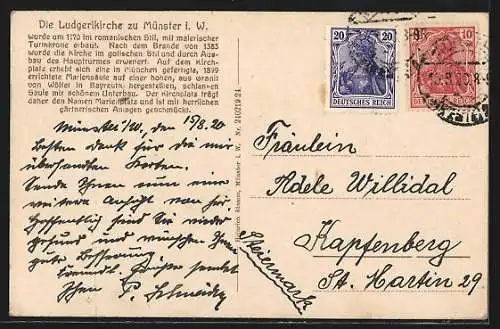 Die Ludgerikirche zu Münster i. W.
wurde um 1170 im romanischen Stil, mit malerischer
Turmkrone erbaut. Nach dem Brande von 1383
wurde die Kirche im gotischen Stil und durch Aus-
bau des Hauptturmes erweitert. Auf dem Kirch-
platz erhebt sich eine in München gefertigte, 1899
errichtete Mariensäule auf einer hohen, aus Granit
von Wölfel in Bayreuth hergestellten, schlanken
Säule mit schönem Unterbau. Der Kirchplatz trägt
daher den Namen Marienplatz und ist mit herrlichen
gärtnerischen Anlagen geschmückt.
20 20
DEUTSCHES REICH
10
Münster i/W., den 15/8.20
Besten Dank für die mir
übersandten Karten.
Sende Ihnen nun eine
weitere Ansicht von hier
Hoffentlich sind Sie wieder
gesund und wünschen Ihnen
gute Besserung.
Freundl. Grüße sendet
Ihnen P. Schneider
Münster i. W. Nr. 240219 24
Fräulein
Adele Willidal
Kapfenberg
St. Martin 29
Steiermark